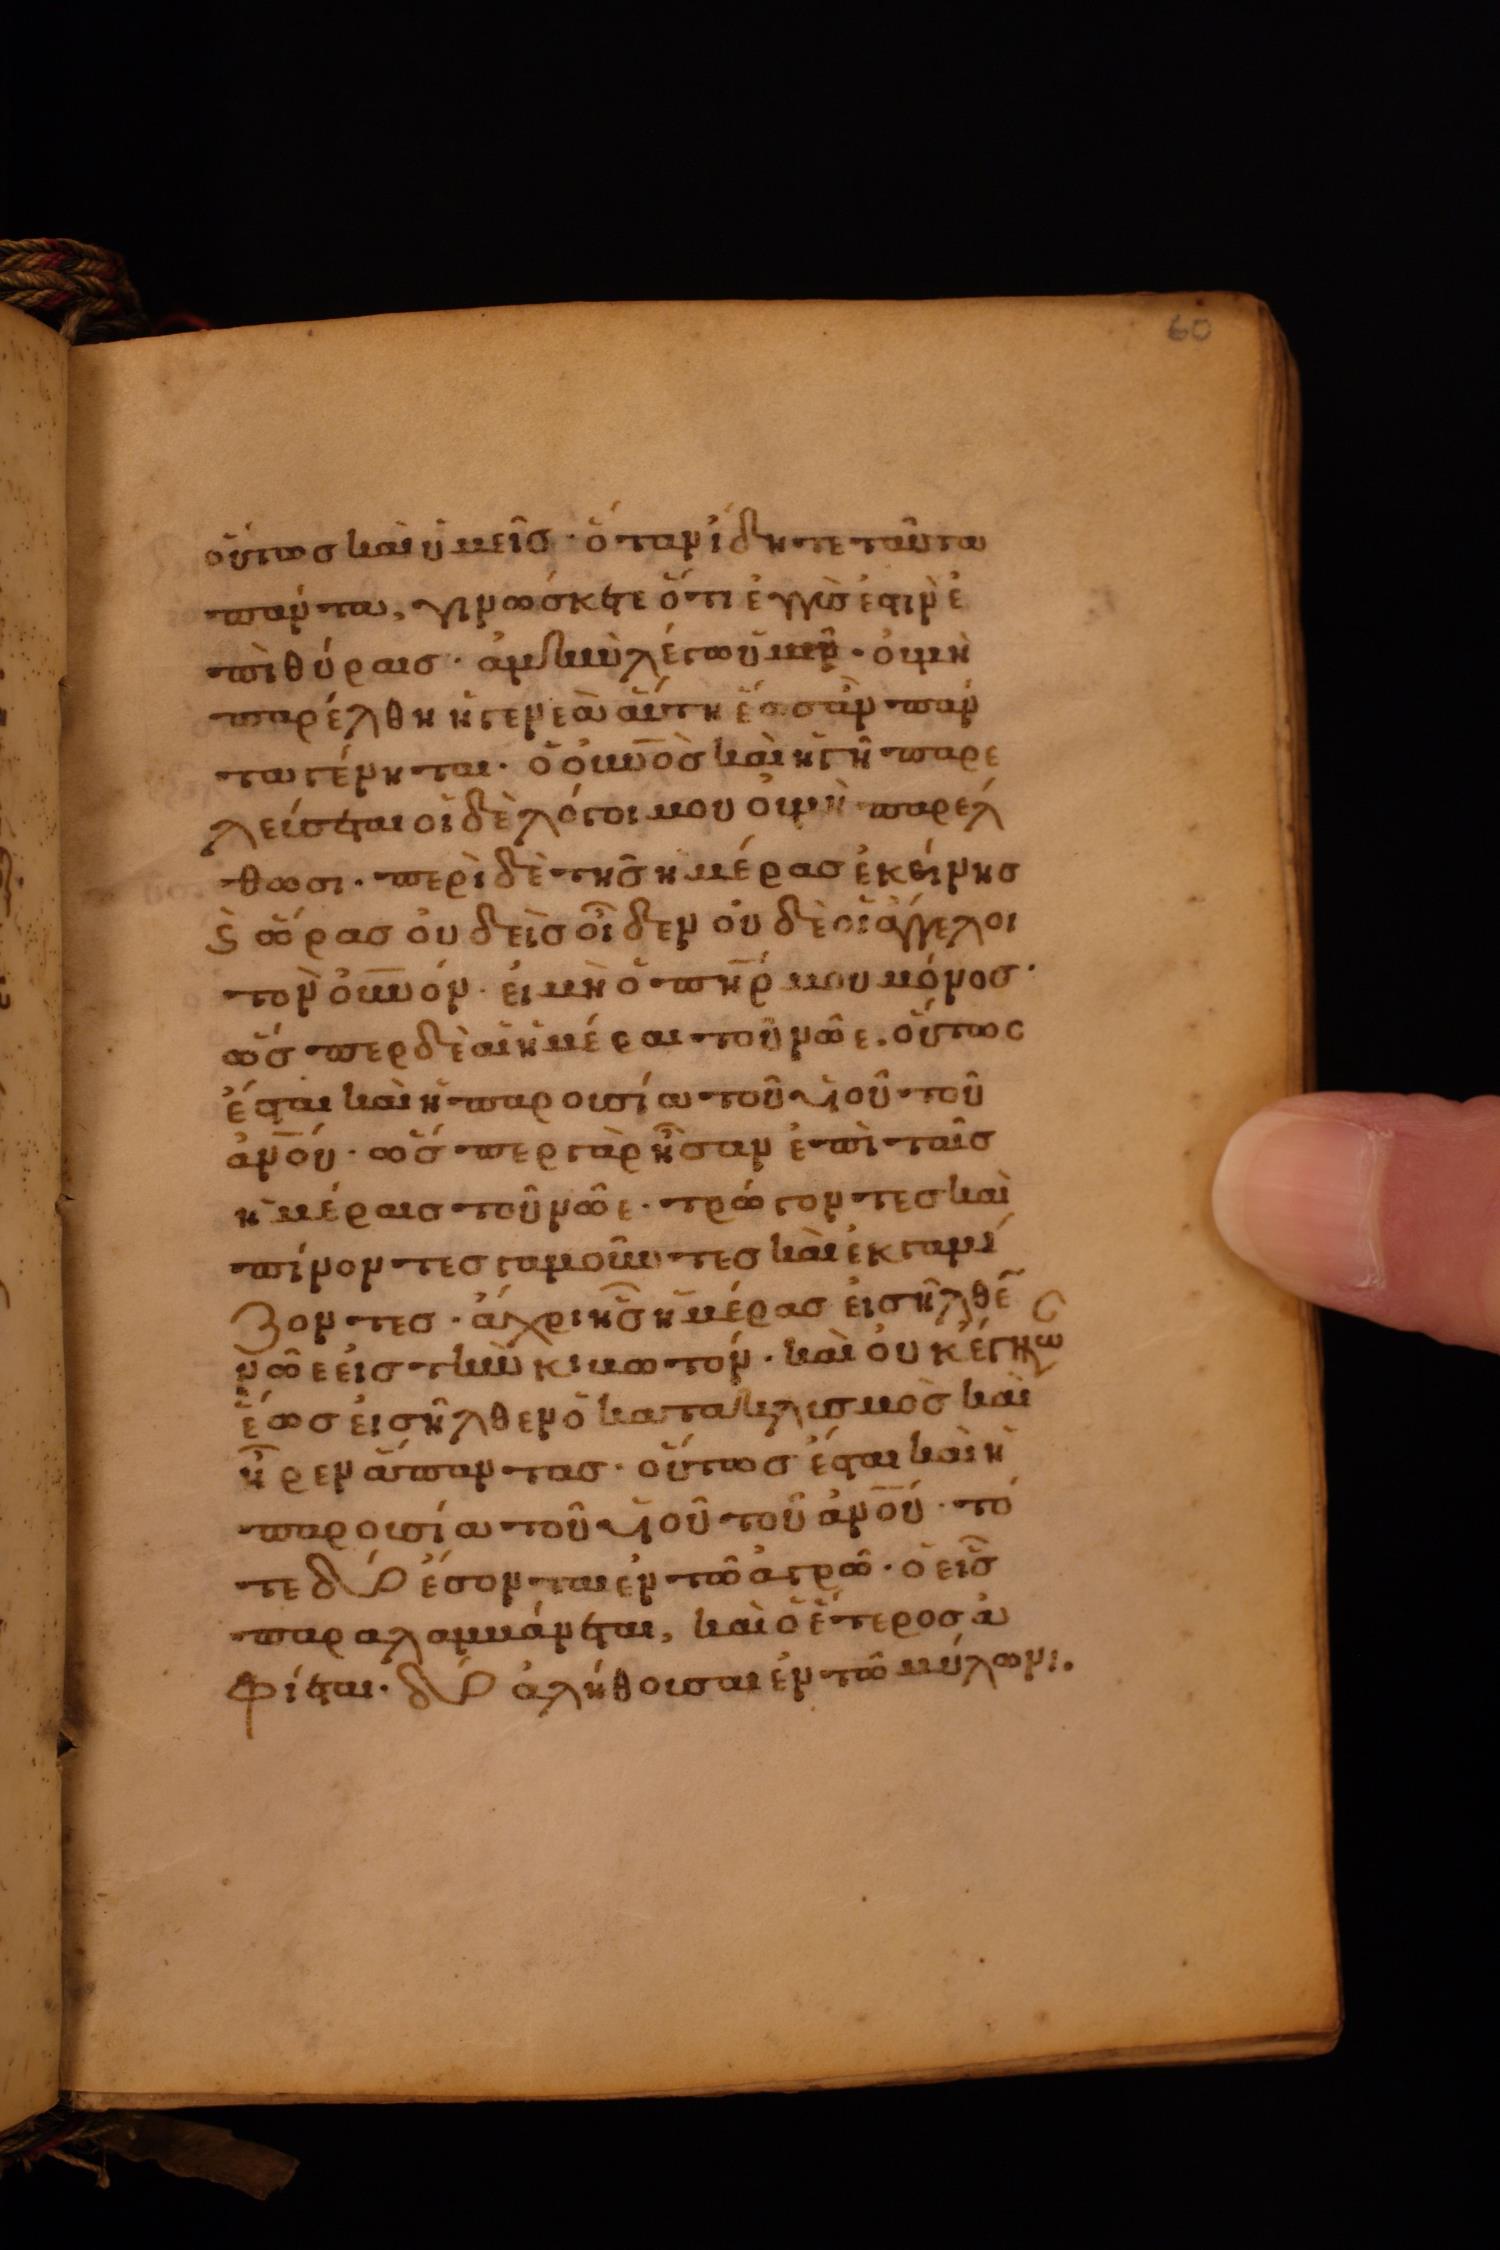 60
οὕτως καὶ ὑμεῖς · ὅταν ἴδητε ταῦτα
πάντα, γινώσκετε ὅτι ἐγγύς ἐστιν ἐ
πὶ θύραις · ἀμὴν λέγω ὑμῖν · οὐ μὴ
παρέλθη ἡ γενεὰ αὕτη ἕως ἂν πάν
τα γένηται · ὁ οὐνὸς καὶ ἡ γῆ παρε
λεύσεται οἱ δὲ λόγοι μου οὐ μὴ παρέλ
θωσι · περὶ δὲ τῆς ἡμέρας ἐκείνης
ϛ ὥρας οὐδεὶς οἶδεν οὐδὲ οἱ ἄγγελοι
τῶν οὐνῶν · εἰ μὴ ὁ πηρ μου μόνος ·
ὥσπερ δὲ αἱ ἡμέραι τοῦ νῶε · οὕτως
ἔσται καὶ ἡ παρουσία τοῦ υἱοῦ τοῦ
ἀνου · ὥσπερ γὰρ ἦσαν ἐπὶ ταῖς
ἡμέραις τοῦ νῶε · τρώγοντες καὶ
πίνοντες γαμοῦντες καὶ ἐκγαμί
ζοντες · ἄχρι ἧς ἡμέρας εἰσῆλθε
νῶε εἰς τὴν κιβωτόν · καὶ οὐκ ἔγνω
ἕως εἰσῆλθεν ὁ κατακλυσμὸς καὶ
ἦρεν ἅπαντας · οὕτως ἔσται καὶ ἡ
παρουσία τοῦ υἱοῦ τοῦ ἀνου · τό
τε δύο ἔσονται ἐν τῶ ἀγρῶ · ὁ εἷς
παραλαμβάνεται, καὶ ὁ ἕτερος ἀ
φίεται · δύο ἀλήθουσαι ἐν τῶ μύλωνι.